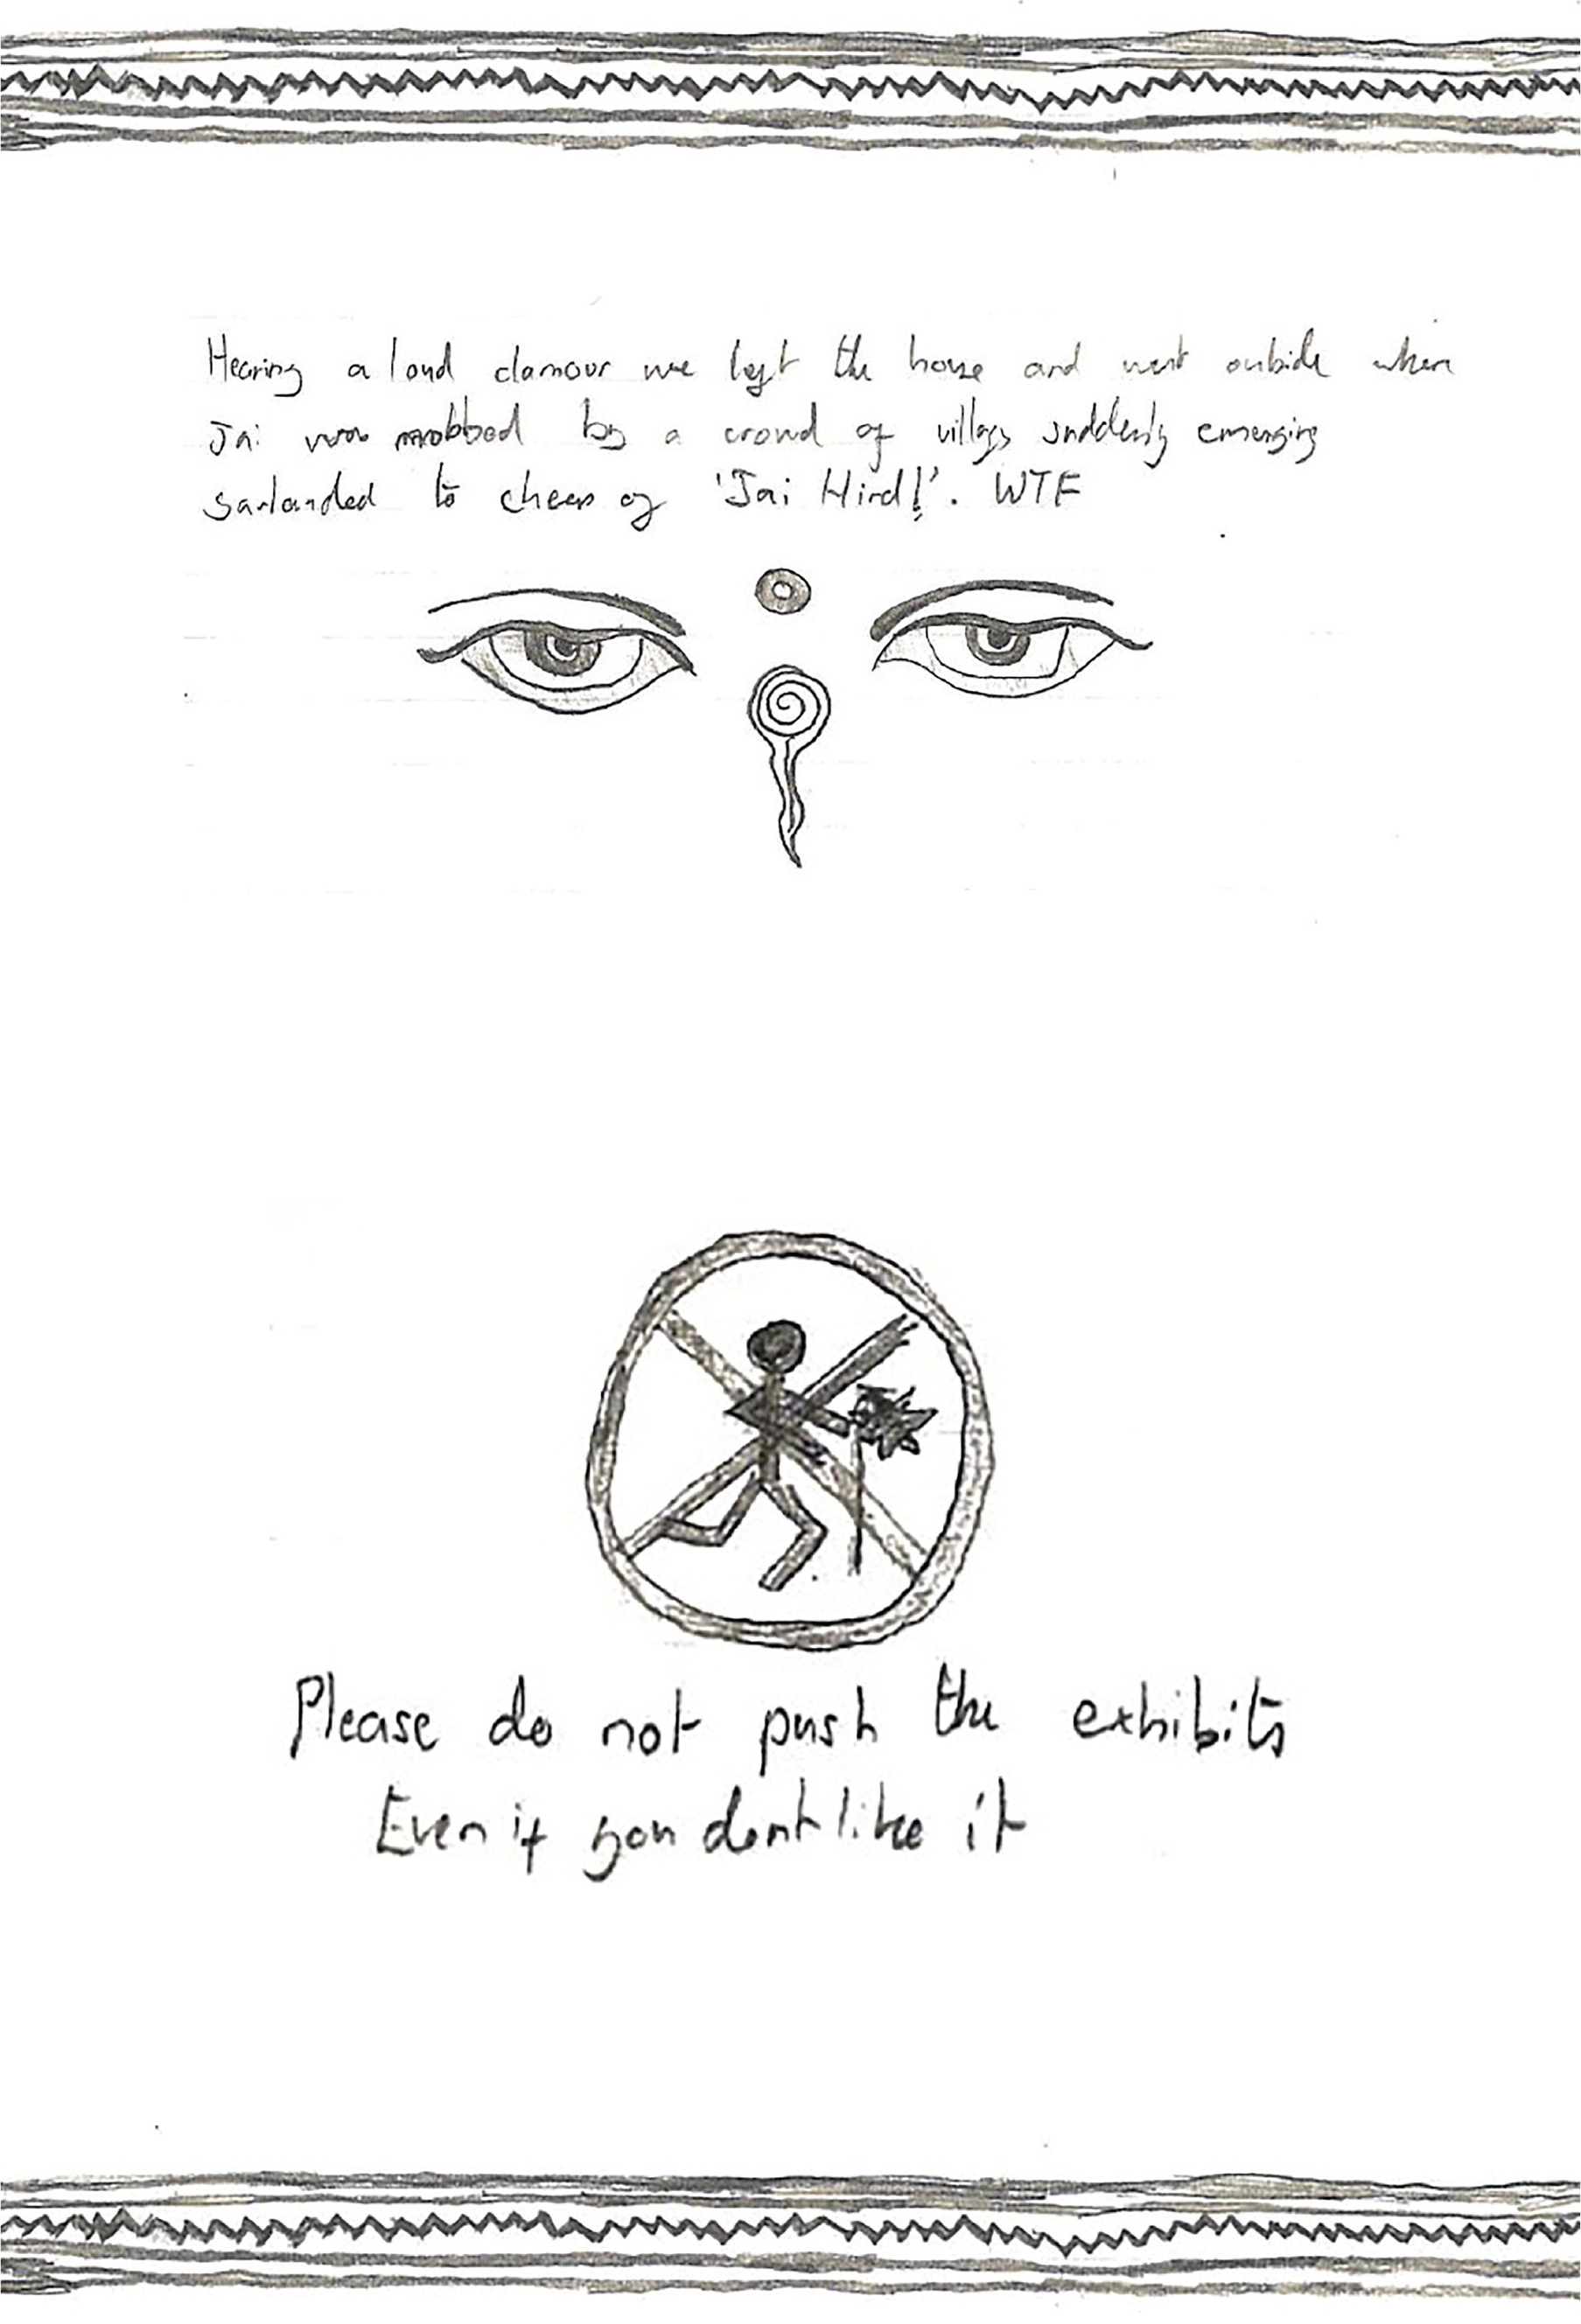 Hearing a loud clamour we left the house and went outside when
Jai was mobbed by a crowd of villags suddenly emerging
garlanded to cheers of 'Jai Hind!'. WTF
Please do not push the exhibits
Even if you dont like it